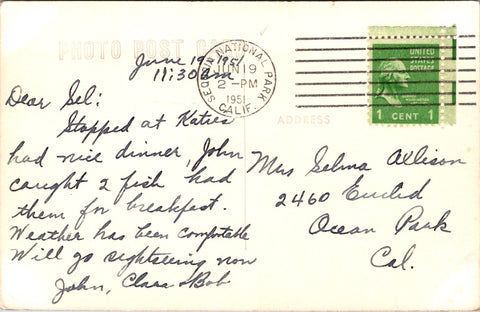 PHOTO POST CARD
June 19 - 1951
11:30 am
SEQUOIA NATIONAL PARK
JUN 19
2 - PM
1951
CALIF.
UNITED
STATES
POSTAGE
WASHINGTON
1 CENT 1
ADDRESS
Dear Sel:
Stopped at Katies
had nice dinner, John
caught 2 fish had
them for breakfast.
Weather has been comfortable
Will go sightseeing now
John, Clara & Bob
Mrs Selma Allison
2460 Euclid
Ocean Park
Cal.